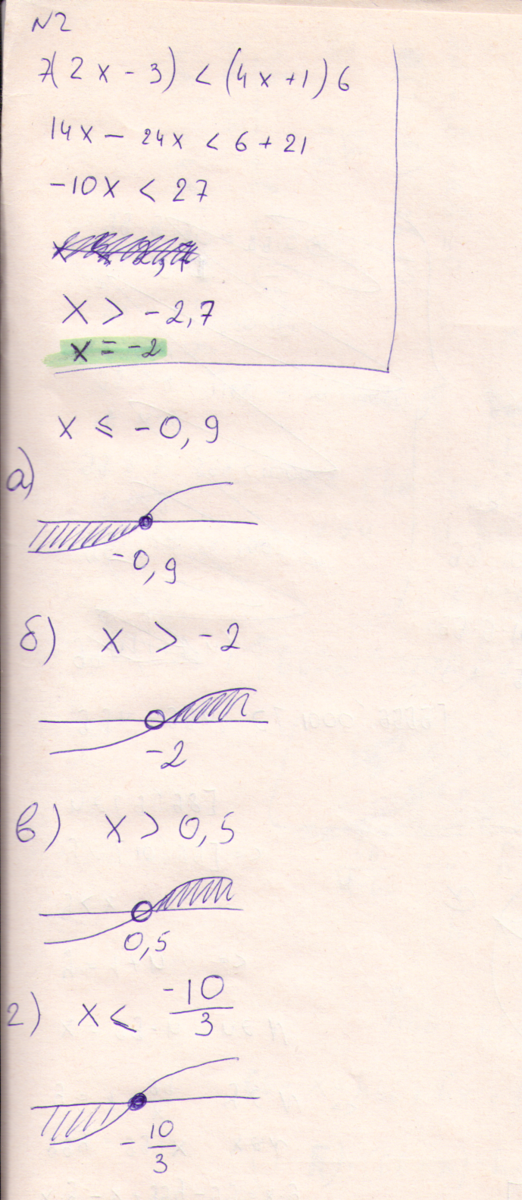 N2
7(2x-3) < (4x+1)6
14x - 24x < 6 + 21
-10x < 27
x > -2,7
x = -2
x ≤ -0,9
а)
-0,9
б) x > -2
-2
в) x > 0,5
0,5
г) x ≤ -10/3
-10/3